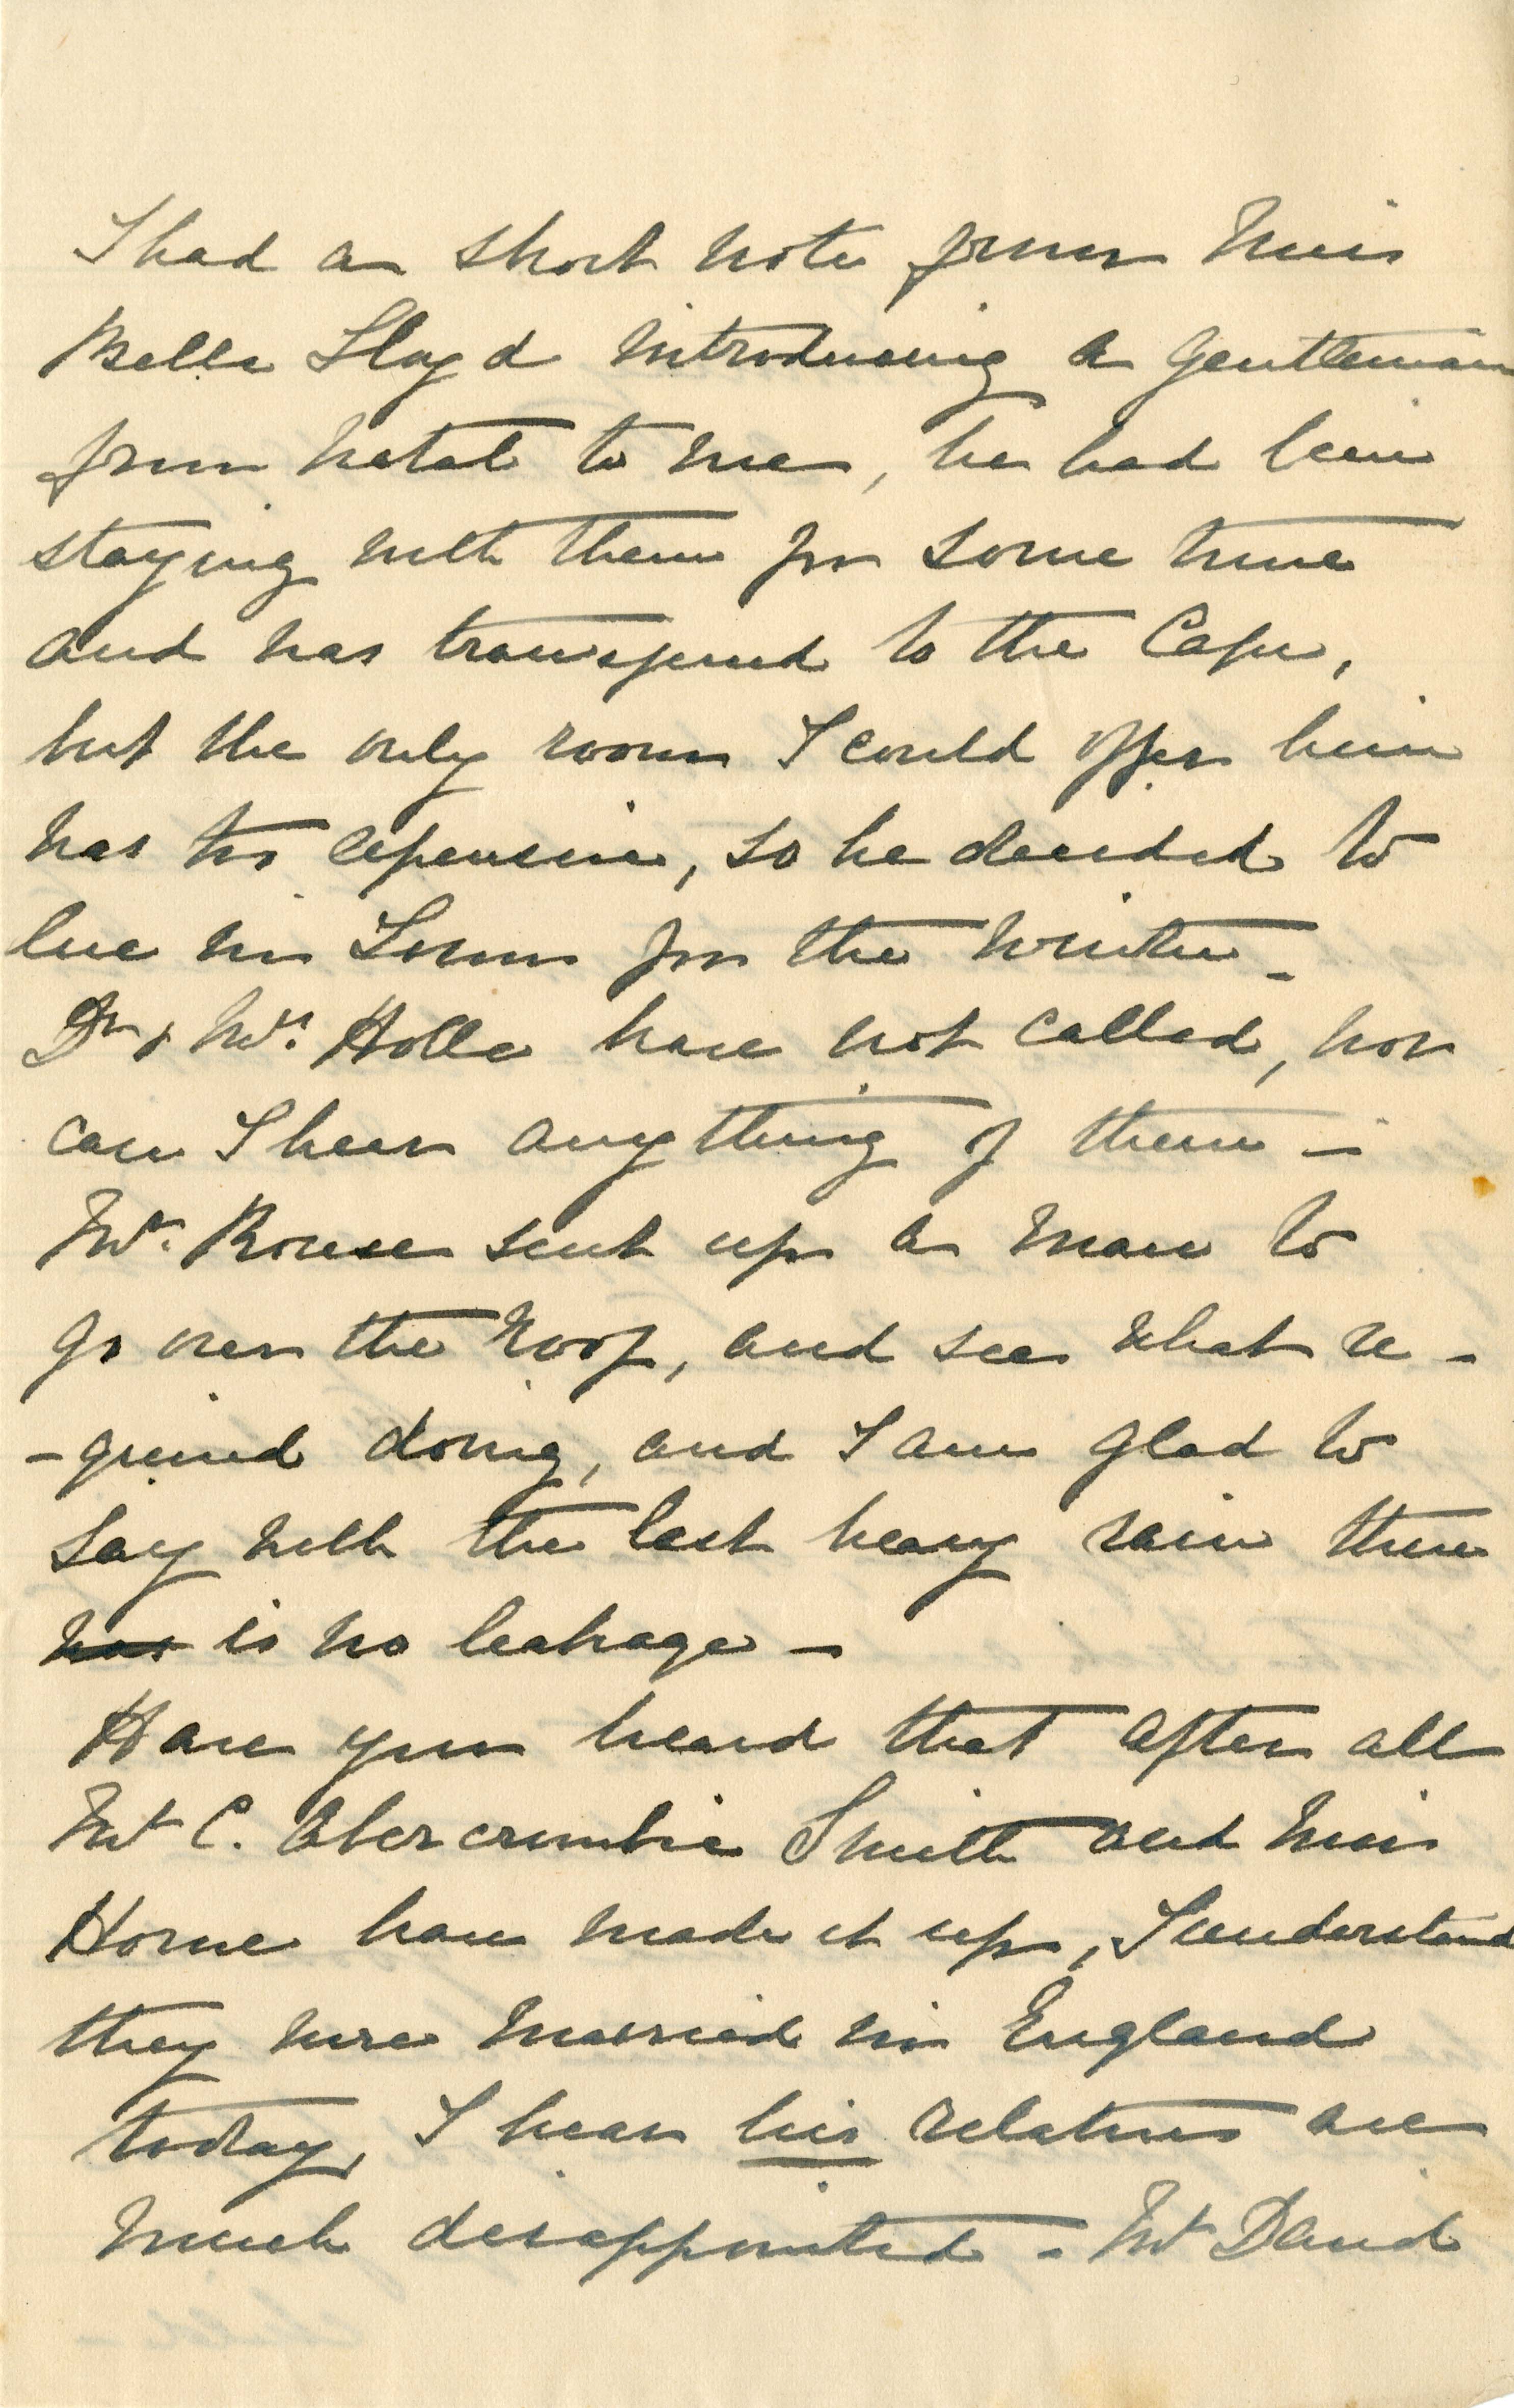 I had a short note from Miss
Bella Lloyd introducing a gentleman
from Natal to me, he had been
staying with them for some time
and was transferred to the Cape,
but the only room I could offer him
was too expensive, so he decided to
live in Town for the winter -
Dr & Mrs. Holle have not called, nor
can I hear anything of them -
Mr. Rouse sent up a man to
go over the roof, and see what re -
- quired doing, and I am glad to
say with the last heavy rain there
was is no leakage -
Have you heard that after all
Mr C. Abercrombie Smith and Miss
Horne have made it up, I understand
they were married in England
today, I hear his relatives are
much disappointed - Mr David